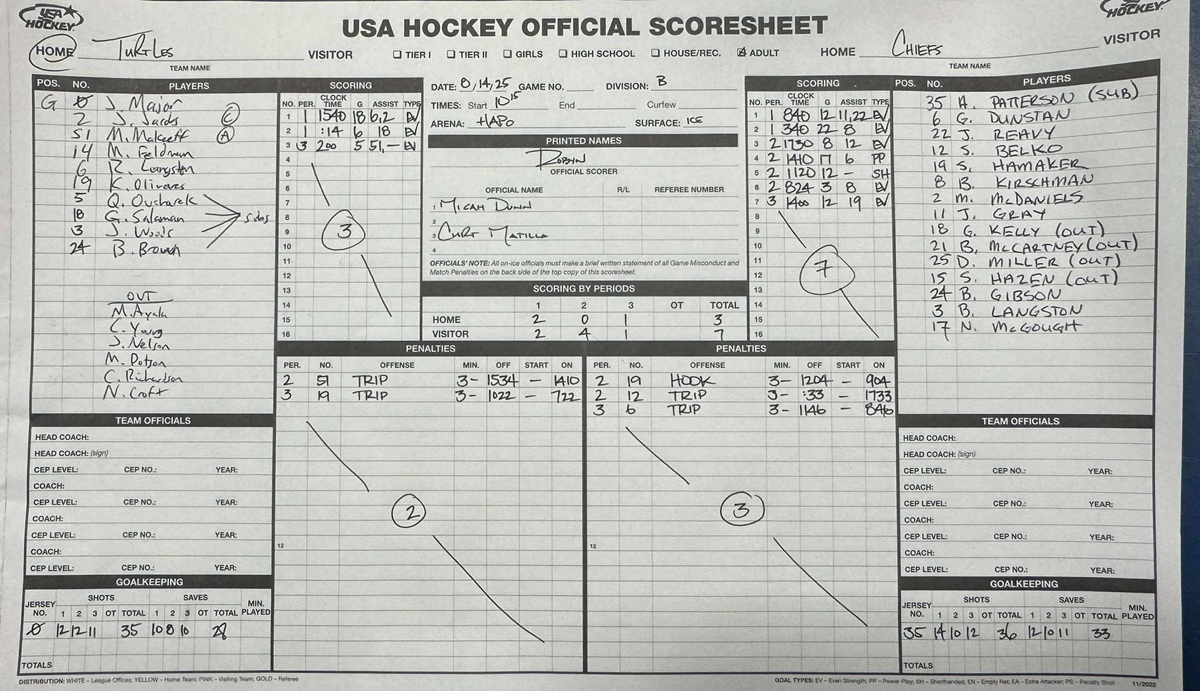 USA HOCKEY
USA HOCKEY OFFICIAL SCORESHEET
HOCKEY
HOME TURTLES VISITOR ☐ TIER I ☐ TIER II ☐ GIRLS ☐ HIGH SCHOOL ☐ HOUSE/REC. ☑ ADULT HOME CHIEFS VISITOR
TEAM NAME
TEAM NAME
POS. NO. PLAYERS
G 0 J. Major
2 J. Jacobs C
51 M. Malgeff A
14 M. Feldman
6 R. Langston
19 K. Olivares
5 Q. Ousharek
18 G. Salaman
3 J. Woods
24 B. Brown
Subs
OUT
M. Ayala
C. Young
J. Nelson
M. Dotson
C. Richardson
N. Croft
SCORING
NO. PER. CLOCK TIME G ASSIST TYPE
1 1 1540 18 6,2 EV
2 1 :14 6 18 EV
3 3 200 5 51,- EV
4
5
6
7
8
9
10
11
12
13
14
15
16
3
DATE: 8,14,25 GAME NO. DIVISION: B
TIMES: Start 10 15 End Curfew
ARENA: HAPO SURFACE: ICE
PRINTED NAMES
ROBYN
OFFICIAL SCORER
OFFICIAL NAME R/L REFEREE NUMBER
1 MICAH DUNN
2
3 CURT MATILLA
4
OFFICIALS' NOTE: All on-ice officials must make a brief written statement of all Game Misconduct and
Match Penalties on the back side of the top copy of this scoresheet.
SCORING BY PERIODS
1 2 3 OT TOTAL
HOME 2 0 1 3
VISITOR 2 4 1 7
SCORING
NO. PER. CLOCK TIME G ASSIST TYPE
1 1 840 12 11,22 EV
2 1 340 22 8 EV
3 2 1730 8 12 EV
4 2 1410 17 6 PP
5 2 1120 12 - SH
6 2 824 3 8 EV
7 3 1400 12 19 EV
8
9
10
11
12
13
14
15
16
7
POS. NO. PLAYERS
35 A. PATTERSON (SUB)
6 G. DUNSTAN
22 J. REAVY
12 S. BELKO
19 S. HAMAKER
8 B. KIRSCHMAN
2 M. McDANIELS
11 J. GRAY
18 G. KELLY (OUT)
21 B. McCARTNEY (OUT)
25 D. MILLER (OUT)
15 S. HAZEN (OUT)
24 B. GIBSON
3 B. LANGSTON
17 N. McGOUGH
PENALTIES
PER. NO. OFFENSE MIN. OFF START ON
2 51 TRIP 3- 1534 - 1410
3 19 TRIP 3- 1022 - 722
2
12
PENALTIES
PER. NO. OFFENSE MIN. OFF START ON
2 19 HOOK 3- 1204 - 904
2 12 TRIP 3- :33 - 1733
3 6 TRIP 3- 1146 - 846
3
12
TEAM OFFICIALS
HEAD COACH:
HEAD COACH: (sign)
CEP LEVEL: CEP NO.: YEAR:
COACH:
CEP LEVEL: CEP NO.: YEAR:
COACH:
CEP LEVEL: CEP NO.: YEAR:
COACH:
CEP LEVEL: CEP NO.: YEAR:
GOALKEEPING
JERSEY NO. SHOTS 1 2 3 OT TOTAL SAVES 1 2 3 OT TOTAL MIN. PLAYED
0 12 12 11 35 10 8 10 28
TOTALS
TEAM OFFICIALS
HEAD COACH:
HEAD COACH: (sign)
CEP LEVEL: CEP NO.: YEAR:
COACH:
CEP LEVEL: CEP NO.: YEAR:
COACH:
CEP LEVEL: CEP NO.: YEAR:
COACH:
CEP LEVEL: CEP NO.: YEAR:
GOALKEEPING
JERSEY NO. SHOTS 1 2 3 OT TOTAL SAVES 1 2 3 OT TOTAL MIN. PLAYED
35 14 10 12 36 12 10 11 33
TOTALS
DISTRIBUTION: WHITE – League Offices; YELLOW – Home Team; PINK – Visiting Team; GOLD – Referee
GOAL TYPES: EV – Even Strength; PP – Power Play; SH – Shorthanded; EN – Empty Net; EA – Extra Attacker; PS – Penalty Shot 11/2022